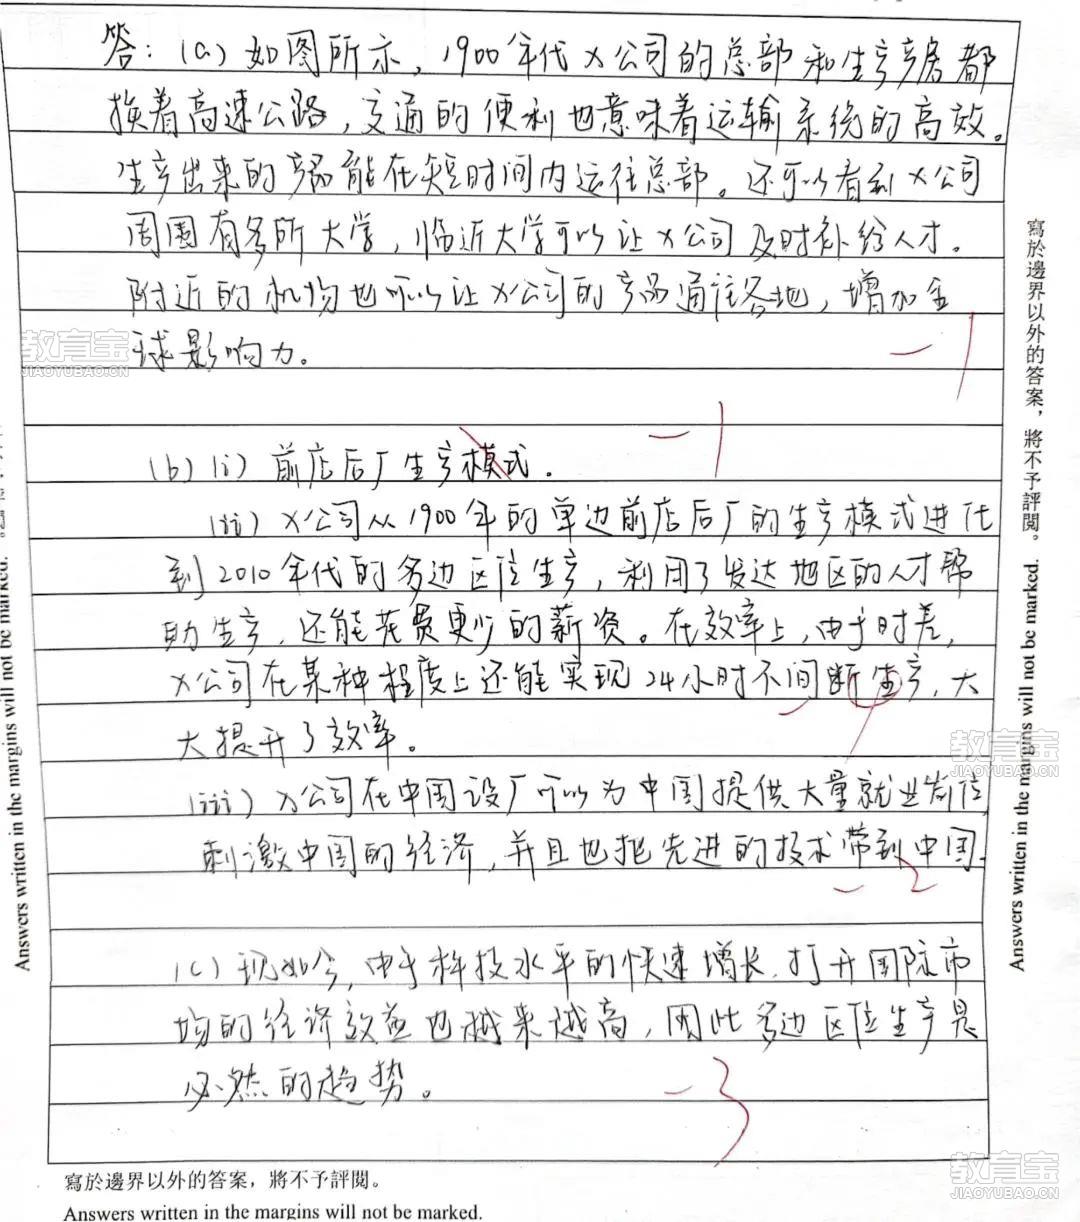 答：(a) 如图所示，1900年代X公司的总部和生产产房都
挨着高速公路，交通的便利也意味着运输系统的高效。
生产出来的产品能在短时间内运往总部。还可以看到X公司
周围有多所大学，临近大学可以让X公司及时补给人才。
附近的机场也可以让X公司的产品通往各地，增加全
球影响力。
-1
-1
(b) (i) 前店后厂生产模式。
(ii) X公司从1900年的单边前店后厂的生产模式进化
到2010年代的多边区位生产，利用了发达地区的人才帮
助生产，还能花费更少的薪资。在效率上，由于时差，
X公司在某种程度上还能实现24小时不间断生产，大
大提升了效率。
(iii) X公司在中国设厂可以为中国提供大量就业岗位，
刺激中国的经济，并且也把先进的技术带到中国。
-2
(c) 现如今，由于科技水平的快速增长，打开国际市
场的经济效益也越来越高，因此多边区位生产是
必然的趋势。
-3
寫於邊界以外的答案，將不予評閱。
Answers written in the margins will not be marked.
寫於邊界以外的答案，將不予評閱。
Answers written in the margins will not be marked.
Answers written in the margins will not be marked.
教育宝
JIAOYUBAO.CN
教育宝
JIAOYUBAO.CN
教育宝
JIAOYUBAO.CN